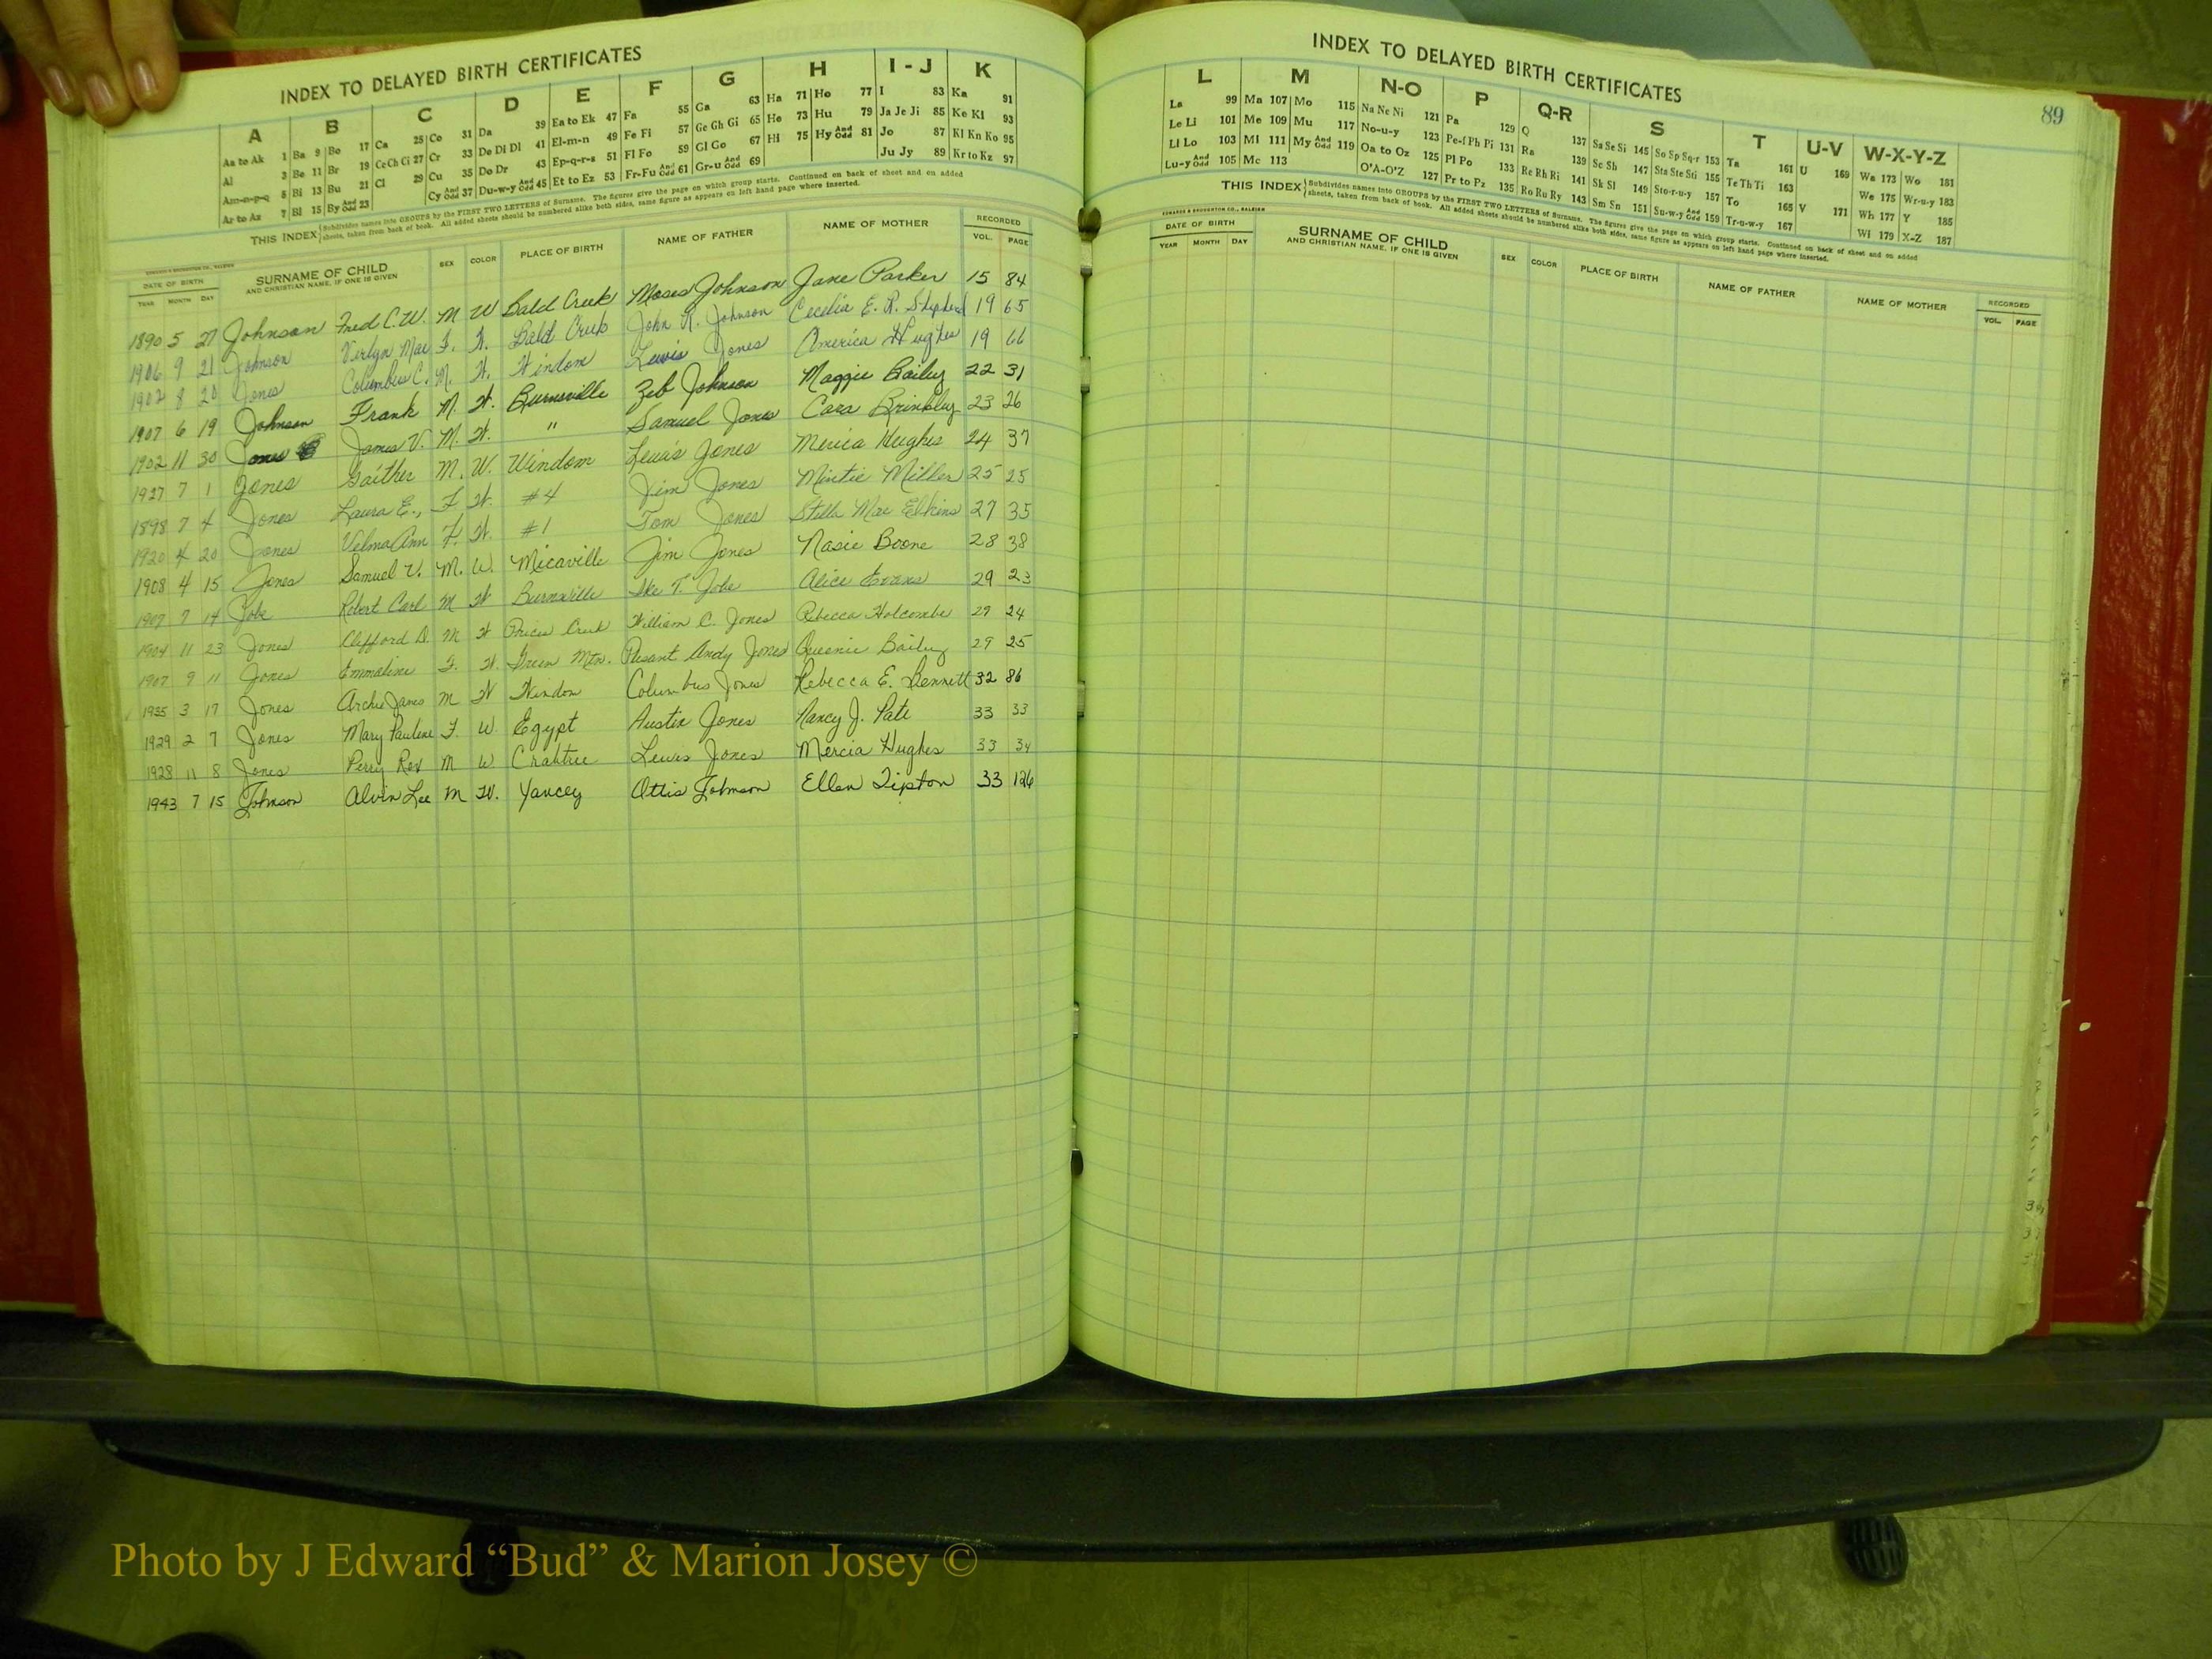 INDEX TO DELAYED BIRTH CERTIFICATES
A B C D E F G H I - J K
Aa to Ak 1 Ba 9 Bo 17 Ca 25 Co 31 Da 39 Ea to Ek 47 Fa 55 Ga 63 Ha 71 Ho 77 I 83 Ka 91
Al 3 Be 11 Br 19 Ce Ch Ci 27 Cr 33 De Di Dl 41 El-m-n 49 Fe Fi 57 Ge Gh Gi 65 He 73 Hu 79 Ja Je Ji 85 Ke Ki 93
Am-n-p-q 5 Bi 13 Bu 21 Cl 29 Cu 35 Do Dr 43 Ep-q-r-s 51 Fl Fo 59 Gl Go 67 Hi 75 Hy And Odd 81 Jo 87 Kl Kn Ko 95
Ar to Az 7 Bl 15 By And Odd 23 Cy And Odd 37 Du-w-y And Odd 45 Et to Ez 53 Fr-Fu And Odd 61 Gr-u And Odd 69 Ju Jy 89 Kr to Kz 97
THIS INDEX Subdivides names into GROUPS by the FIRST TWO LETTERS of Surname. The figures give the page on which group starts. Continued on back of sheet and on added
sheets, taken from back of book. All added sheets should be numbered alike both sides, same figure as appears on left hand page where inserted.
DATE OF BIRTH SURNAME OF CHILD AND CHRISTIAN NAME, IF ONE IS GIVEN SEX COLOR PLACE OF BIRTH NAME OF FATHER NAME OF MOTHER RECORDED
YEAR MONTH DAY VOL. PAGE
1890 5 27 Johnson Fred C. W. M W Bald Creek Moses Johnson Jane Parker 15 84
1906 9 21 Johnson Verlyn Mae F. W. Bald Creek John R. Johnson Cecelia E. R. Shepherd 19 65
1902 8 20 Jones Columbus C. M. W. Windom Lewis Jones America Hughes 19 66
1907 6 19 Johnson Frank M. W. Burnsville Zeb Johnson Maggie Bailey 22 31
1902 11 30 Jones James V. M. W. " Samuel Jones Cora Brinkley 23 26
1927 7 1 Jones Gaither M. W. Windom Lewis Jones Merica Hughes 24 37
1898 7 4 Jones Laura E., F W. #4 Jim Jones Mintie Miller 25 25
1920 4 20 Jones Velma Ann F. W. #1 Tom Jones Stella Mae Elkins 27 35
1908 4 15 Jones Samuel V. M. W. Micaville Jim Jones Nasie Boone 28 38
1907 7 14 Jobe Robert Carl M W Burnsville Ike T. Jobe Alice Evans 29 23
1904 11 23 Jones Clifford D. M W Prices Creek William C. Jones Rebecca Holcombe 29 24
1907 9 11 Jones Emmaline F. W. Green Mtn. Plesant Andy Jones Queenie Bailey 29 25
1935 3 17 Jones Archie James M W Windom Columbus Jones Rebecca E. Bennett 32 86
1929 2 7 Jones Mary Paulene F W. Egypt Austin Jones Nancy J. Pate 33 33
1928 11 8 Jones Perry Rex M W Crabtree Lewis Jones Mercia Hughes 33 34
1943 7 15 Johnson Alvin Lee M W. Yancey Ottis Johnson Ellen Tipton 33 126
INDEX TO DELAYED BIRTH CERTIFICATES
89
L M N-O P Q-R S T U-V W-X-Y-Z
La 99 Ma 107 Mo 115 Na Ne Ni 121 Pa 129 Q 137 Sa Se Si 145 So Sp Sq-r 153 Ta 161 U 169 Wa 173 Wo 181
Le Li 101 Me 109 Mu 117 No-u-y 123 Pe-f Ph Pi 131 Ra 139 Sc Sh 147 Sta Ste Sti 155 Te Th Ti 163 We 175 Wr-u-y 183
Ll Lo 103 Mi 111 My And Odd 119 Oa to Oz 125 Pl Po 133 Re Rh Ri 141 Sk Sl 149 Sto-r-u-y 157 To 165 V 171 Wh 177 Y 185
Lu-y And Odd 105 Mc 113 O'A-O'Z 127 Pr to Pz 135 Ro Ru Ry 143 Sm Sn 151 Su-w-y And Odd 159 Tr-u-w-y 167 Wi 179 X-Z 187
THIS INDEX Subdivides names into GROUPS by the FIRST TWO LETTERS of Surname. The figures give the page on which group starts. Continued on back of sheet and on added
sheets, taken from back of book. All added sheets should be numbered alike both sides, same figure as appears on left hand page where inserted.
EDWARDS & BROUGHTON CO., RALEIGH
DATE OF BIRTH SURNAME OF CHILD AND CHRISTIAN NAME, IF ONE IS GIVEN SEX COLOR PLACE OF BIRTH NAME OF FATHER NAME OF MOTHER RECORDED
YEAR MONTH DAY VOL. PAGE
Photo by J Edward “Bud” & Marion Josey ©